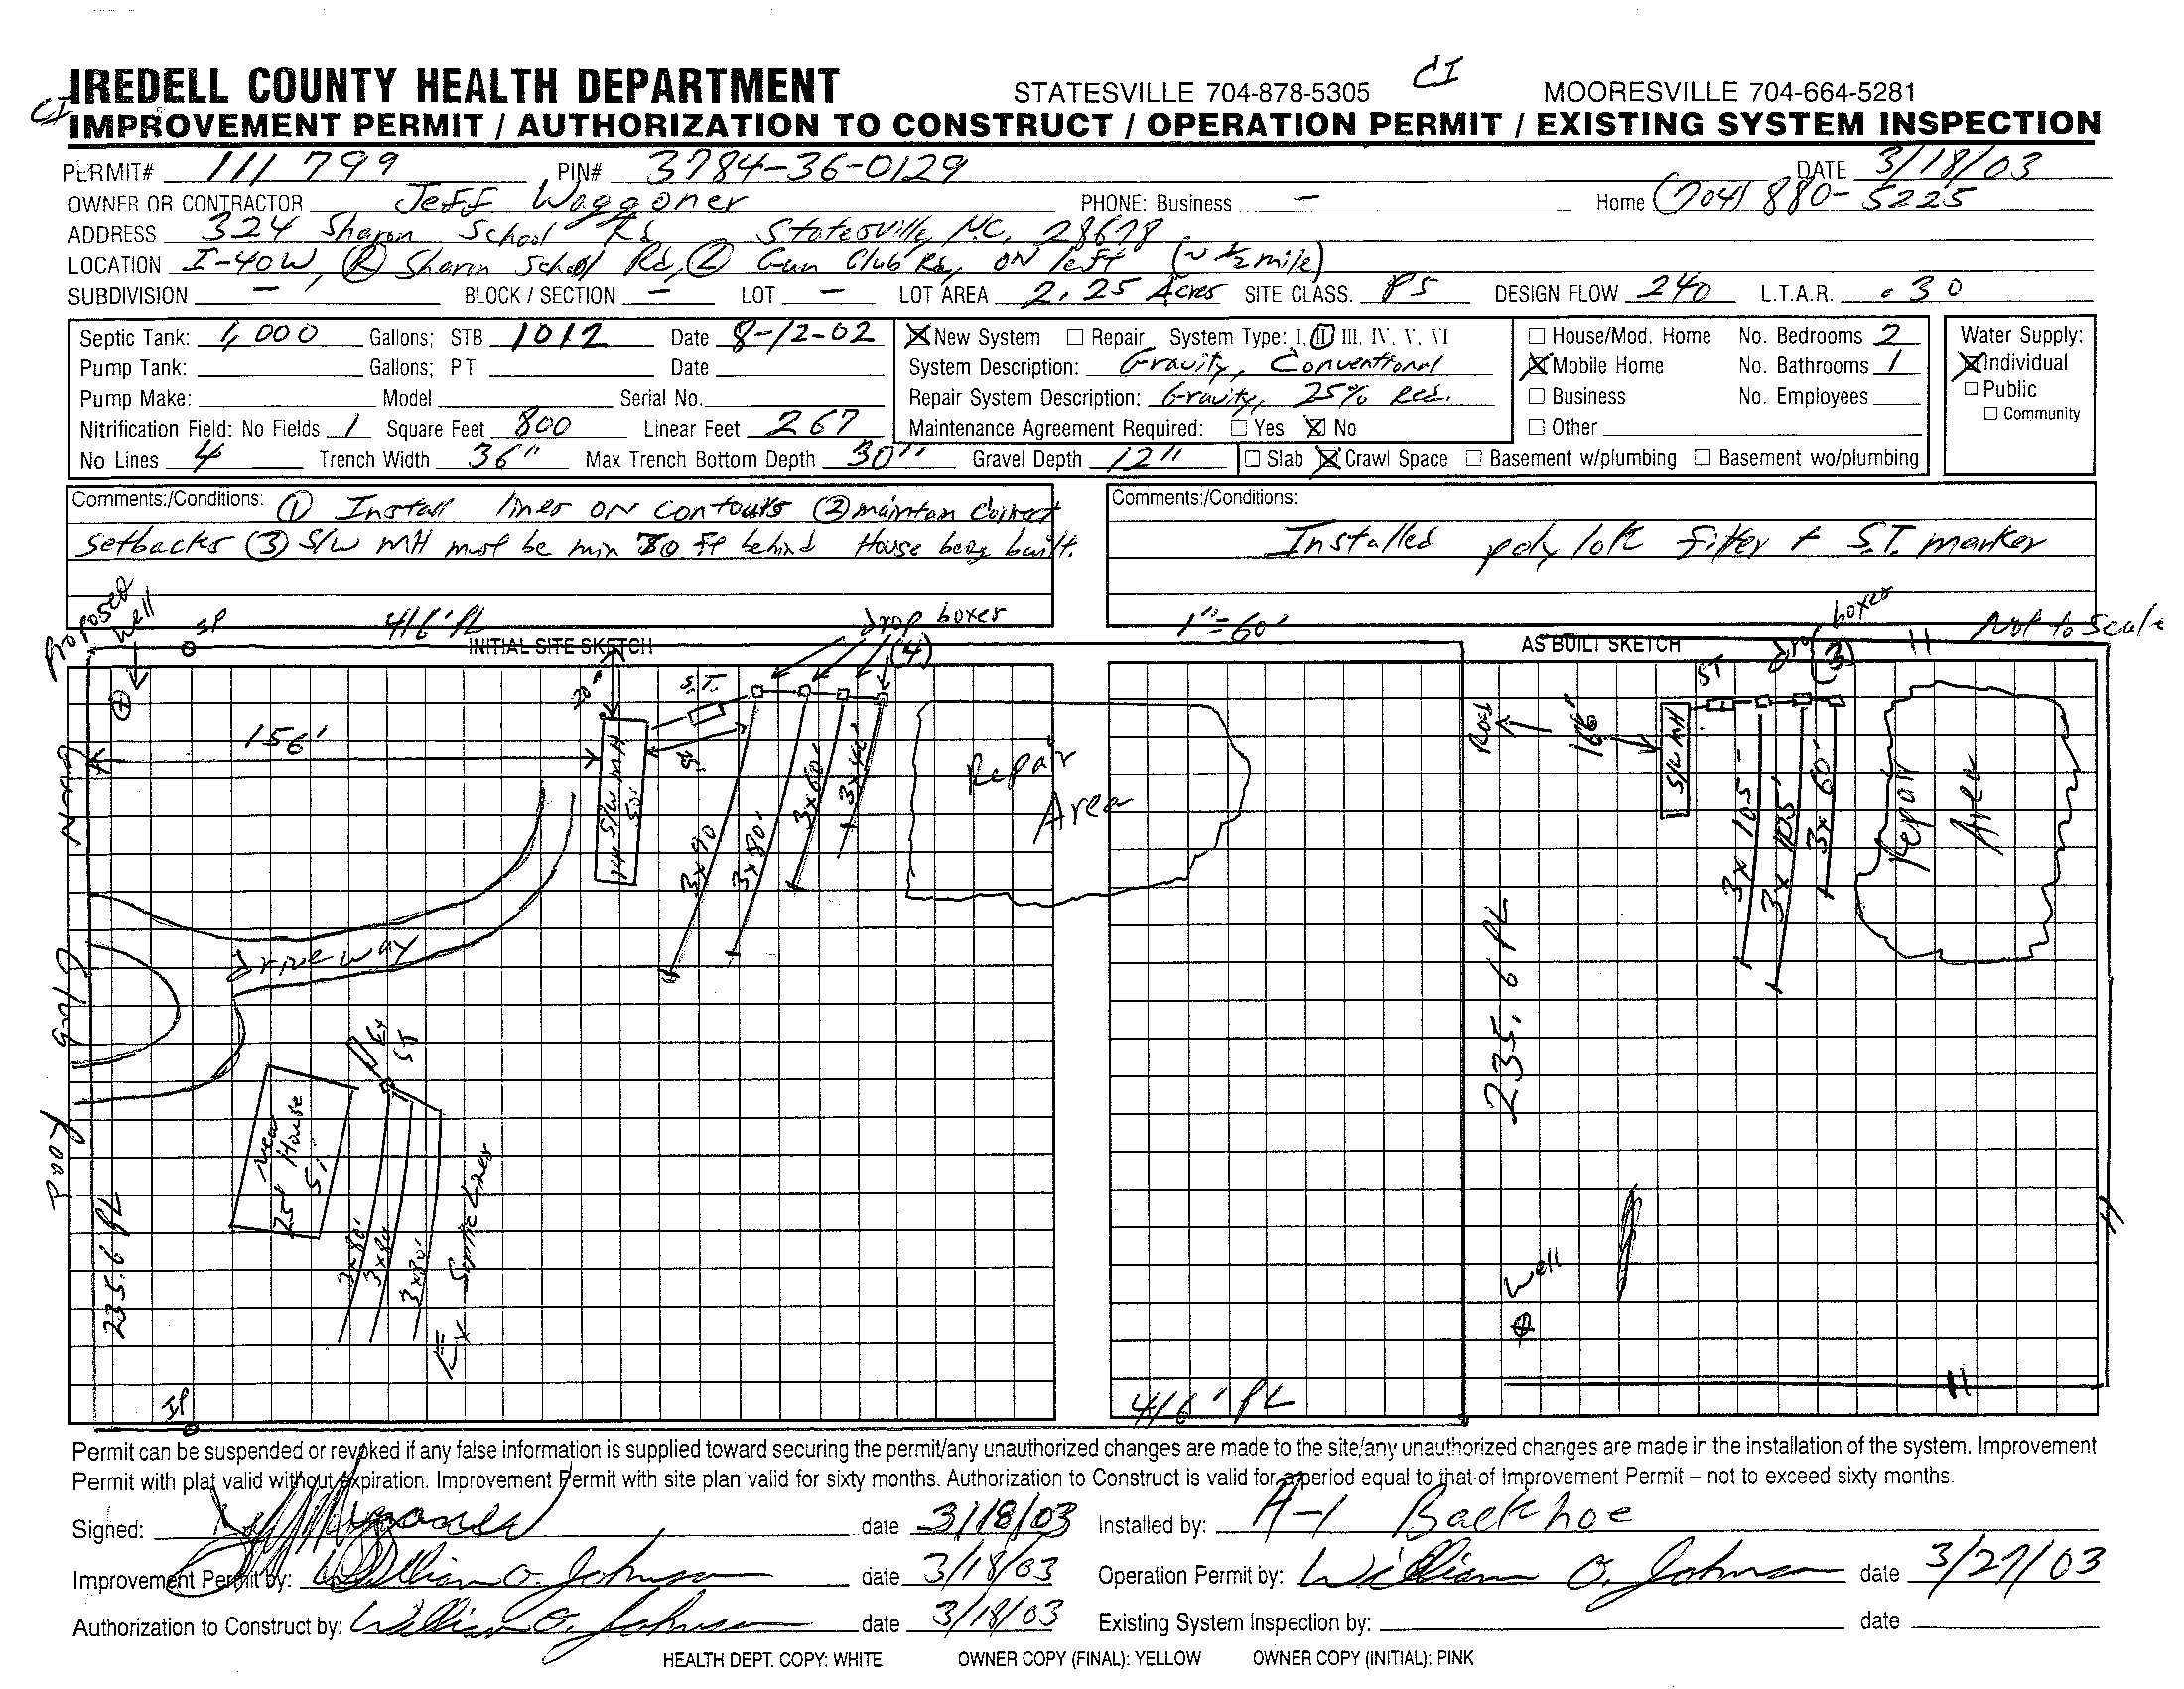 CI
IREDELL COUNTY HEALTH DEPARTMENT STATESVILLE 704-878-5305 CI MOORESVILLE 704-664-5281
IMPROVEMENT PERMIT / AUTHORIZATION TO CONSTRUCT / OPERATION PERMIT / EXISTING SYSTEM INSPECTION
PERMIT# 111799 PIN# 3784-36-0129 DATE 3/18/03
OWNER OR CONTRACTOR Jeff Waggoner PHONE: Business – Home (704) 880-5225
ADDRESS 324 Sharon School Rd Statesville, N.C, 28678
LOCATION I-40W, (R) Sharon School Rd, (L) Gun Club Rd, ON left (~ 1/2 mile)
SUBDIVISION – BLOCK / SECTION – LOT – LOT AREA 2.25 Acres SITE CLASS. PS DESIGN FLOW 240 L.T.A.R. .30
Septic Tank: 1,000 Gallons; STB 1012 Date 8-12-02 ☒ New System ☐ Repair System Type: I, II, III, IV, V, VI ☐ House/Mod. Home No. Bedrooms 2 Water Supply:
Pump Tank: Gallons; PT Date System Description: Gravity, Conventional ☒ Mobile Home No. Bathrooms 1 ☒ Individual
Pump Make: Model Serial No. Repair System Description: Gravity, 25% Red. ☐ Business No. Employees ☐ Public
Nitrification Field: No Fields 1 Square Feet 800 Linear Feet 267 Maintenance Agreement Required: ☐ Yes ☒ No ☐ Other ☐ Community
No Lines 4 Trench Width 36" Max Trench Bottom Depth 30" Gravel Depth 12" ☐ Slab ☒ Crawl Space ☐ Basement w/plumbing ☐ Basement wo/plumbing
Comments:/Conditions: ① Install lines ON contours ② maintain correct
setbacks ③ S/W MH must be min 30 ft behind House being built.
Comments:/Conditions:
Installed poly lok filter + S.T. marker
Proposed well
IP
416' PL
drop boxes
(4)
INITIAL SITE SKETCH
1"=60'
AS BUILT SKETCH
drop boxes
(3)
Not to Scale
S.T.
156'
14 S/W MH
50'
3x90
3x80'
3x60'
3x40'
Repair
Area
driveway
Gun Club Road
Ex
ST
new
House
Si
75'
3x80'
3x80'
3x80'
Ex Septic Lines
235.6 PL
IP
Road
166'
S/W MH
ST
3x105'
3x105'
3x60'
Repair
Area
235.6 PL
Well
416' PL
Permit can be suspended or revoked if any false information is supplied toward securing the permit/any unauthorized changes are made to the site/any unauthorized changes are made in the installation of the system. Improvement
Permit with plat valid without expiration. Improvement Permit with site plan valid for sixty months. Authorization to Construct is valid for a period equal to that of Improvement Permit – not to exceed sixty months.
Signed: date 3/18/03 Installed by: A-1 Backhoe
Improvement Permit by: William O. Johnson date 3/18/03 Operation Permit by: William O. Johnson date 3/27/03
Authorization to Construct by: William O. Johnson date 3/18/03 Existing System Inspection by: date
HEALTH DEPT. COPY: WHITE OWNER COPY (FINAL): YELLOW OWNER COPY (INITIAL): PINK